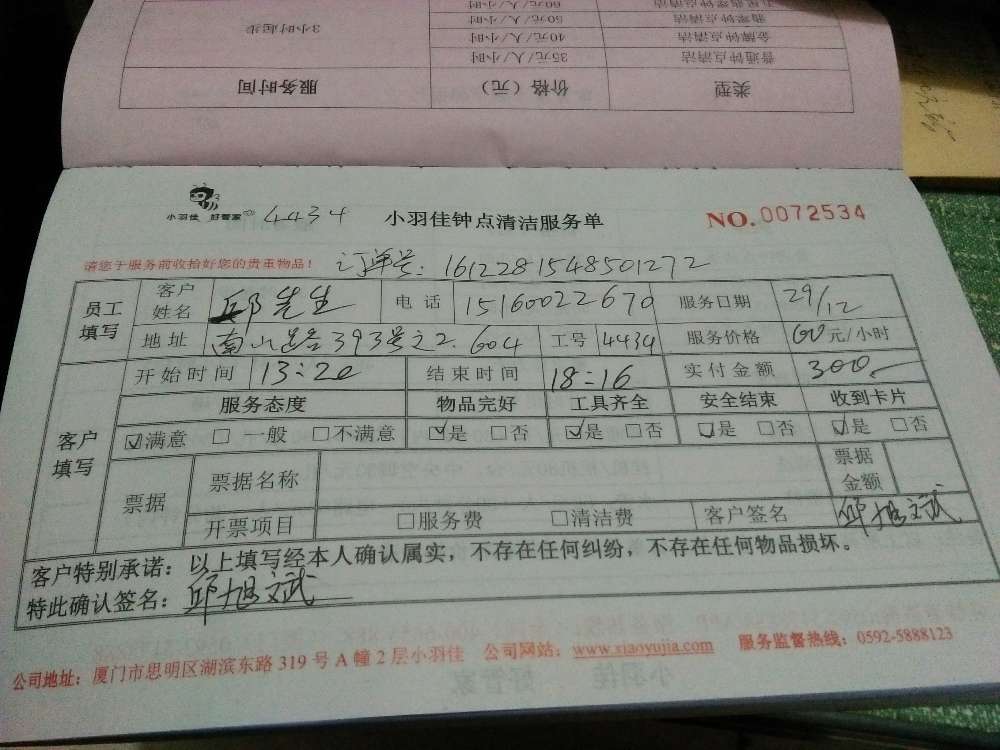 类型 价格（元） 服务时间
普通钟点清洁 35元/人/小时 3小时起步
金牌钟点清洁 40元/人/小时
翡翠钟点清洁 50元/人/小时
60元/人/小时
小羽佳 好管家 4434 小羽佳钟点清洁服务单 NO.0072534
请您于服务前收拾好您的贵重物品！ 订单号：1612281548501272
员工填写 客户姓名 邱先生 电话 15160022670 服务日期 29/12
地址 南山路393号之2.604 工号 4434 服务价格 60元/小时
客户填写 开始时间 13:20 结束时间 18:16 实付金额 300
服务态度 物品完好 工具齐全 安全结束 收到卡片
☑满意 □一般 □不满意 ☑是 □否 ☑是 □否 ☑是 □否 ☑是 □否
票据 票据名称 票据金额
开票项目 □服务费 □清洁费 客户签名 邱旭文武
客户特别承诺：以上填写经本人确认属实，不存在任何纠纷，不存在任何物品损坏。
特此确认签名：邱旭文武
公司地址：厦门市思明区湖滨东路319号A幢2层小羽佳 公司网站：www.xiaoyujia.com 服务监督热线：0592-5888123